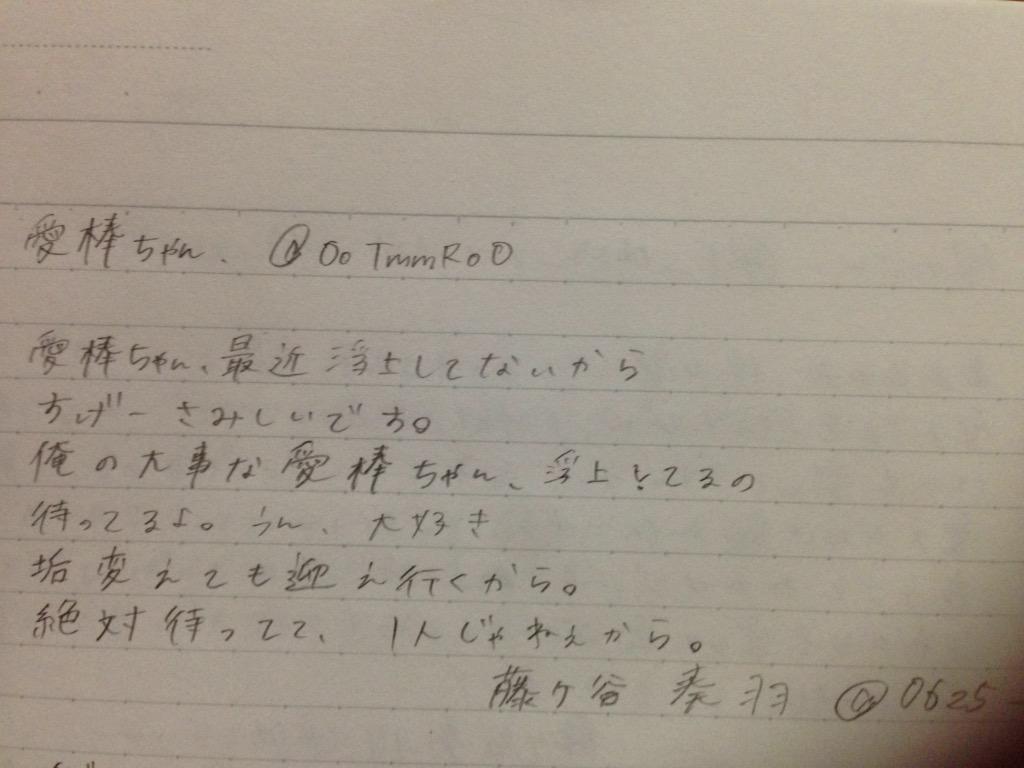 愛棒ちゃん、 @OoTmmRoO
愛棒ちゃん、最近浮上してないから
すげーさみしいです。
俺の大事な愛棒ちゃん、浮上してるの
待ってるよ。うん、大好き
垢変えても迎え行くから。
絶対待ってて、1人じゃねぇから。
藤ヶ谷 奏羽 @0625